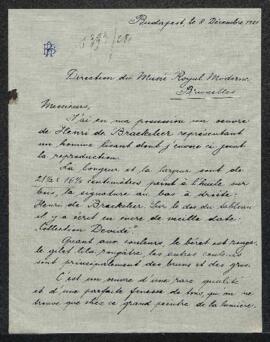 Budapest, le 8 Décembre 1921
Direction du Musée Royal Moderne
Bruxelles
Messieurs,
J'ai en ma possession un oeuvre
de Henri de Braekelier représentant
un homme lisant dont j'envoie ci joint
la reproduction.
La longueur et la largeur sont de
21½ x 16½ centimètres peint à l'huile sur
bois, la signature au bas à droite:
Henri de Braekelier. Sur le dos du tableau
est y a écrit en encre de vieille date
"Collection Devidé"
Quant aux couleurs, le béret est rouge,
le gilet lila, rougeâtre, les autres couleurs
sont principalement des bruns et des gris.
C'est un oeuvre d'une rare qualité
et d'une parfaite finesse de tons, qu'on ne
trouve que chez ce grand peintre de la lumière.